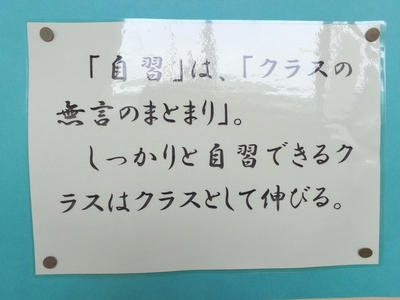 「自習」は、「クラスの
無言のまとまり」。
しっかりと自習できるク
ラスはクラスとして伸びる。